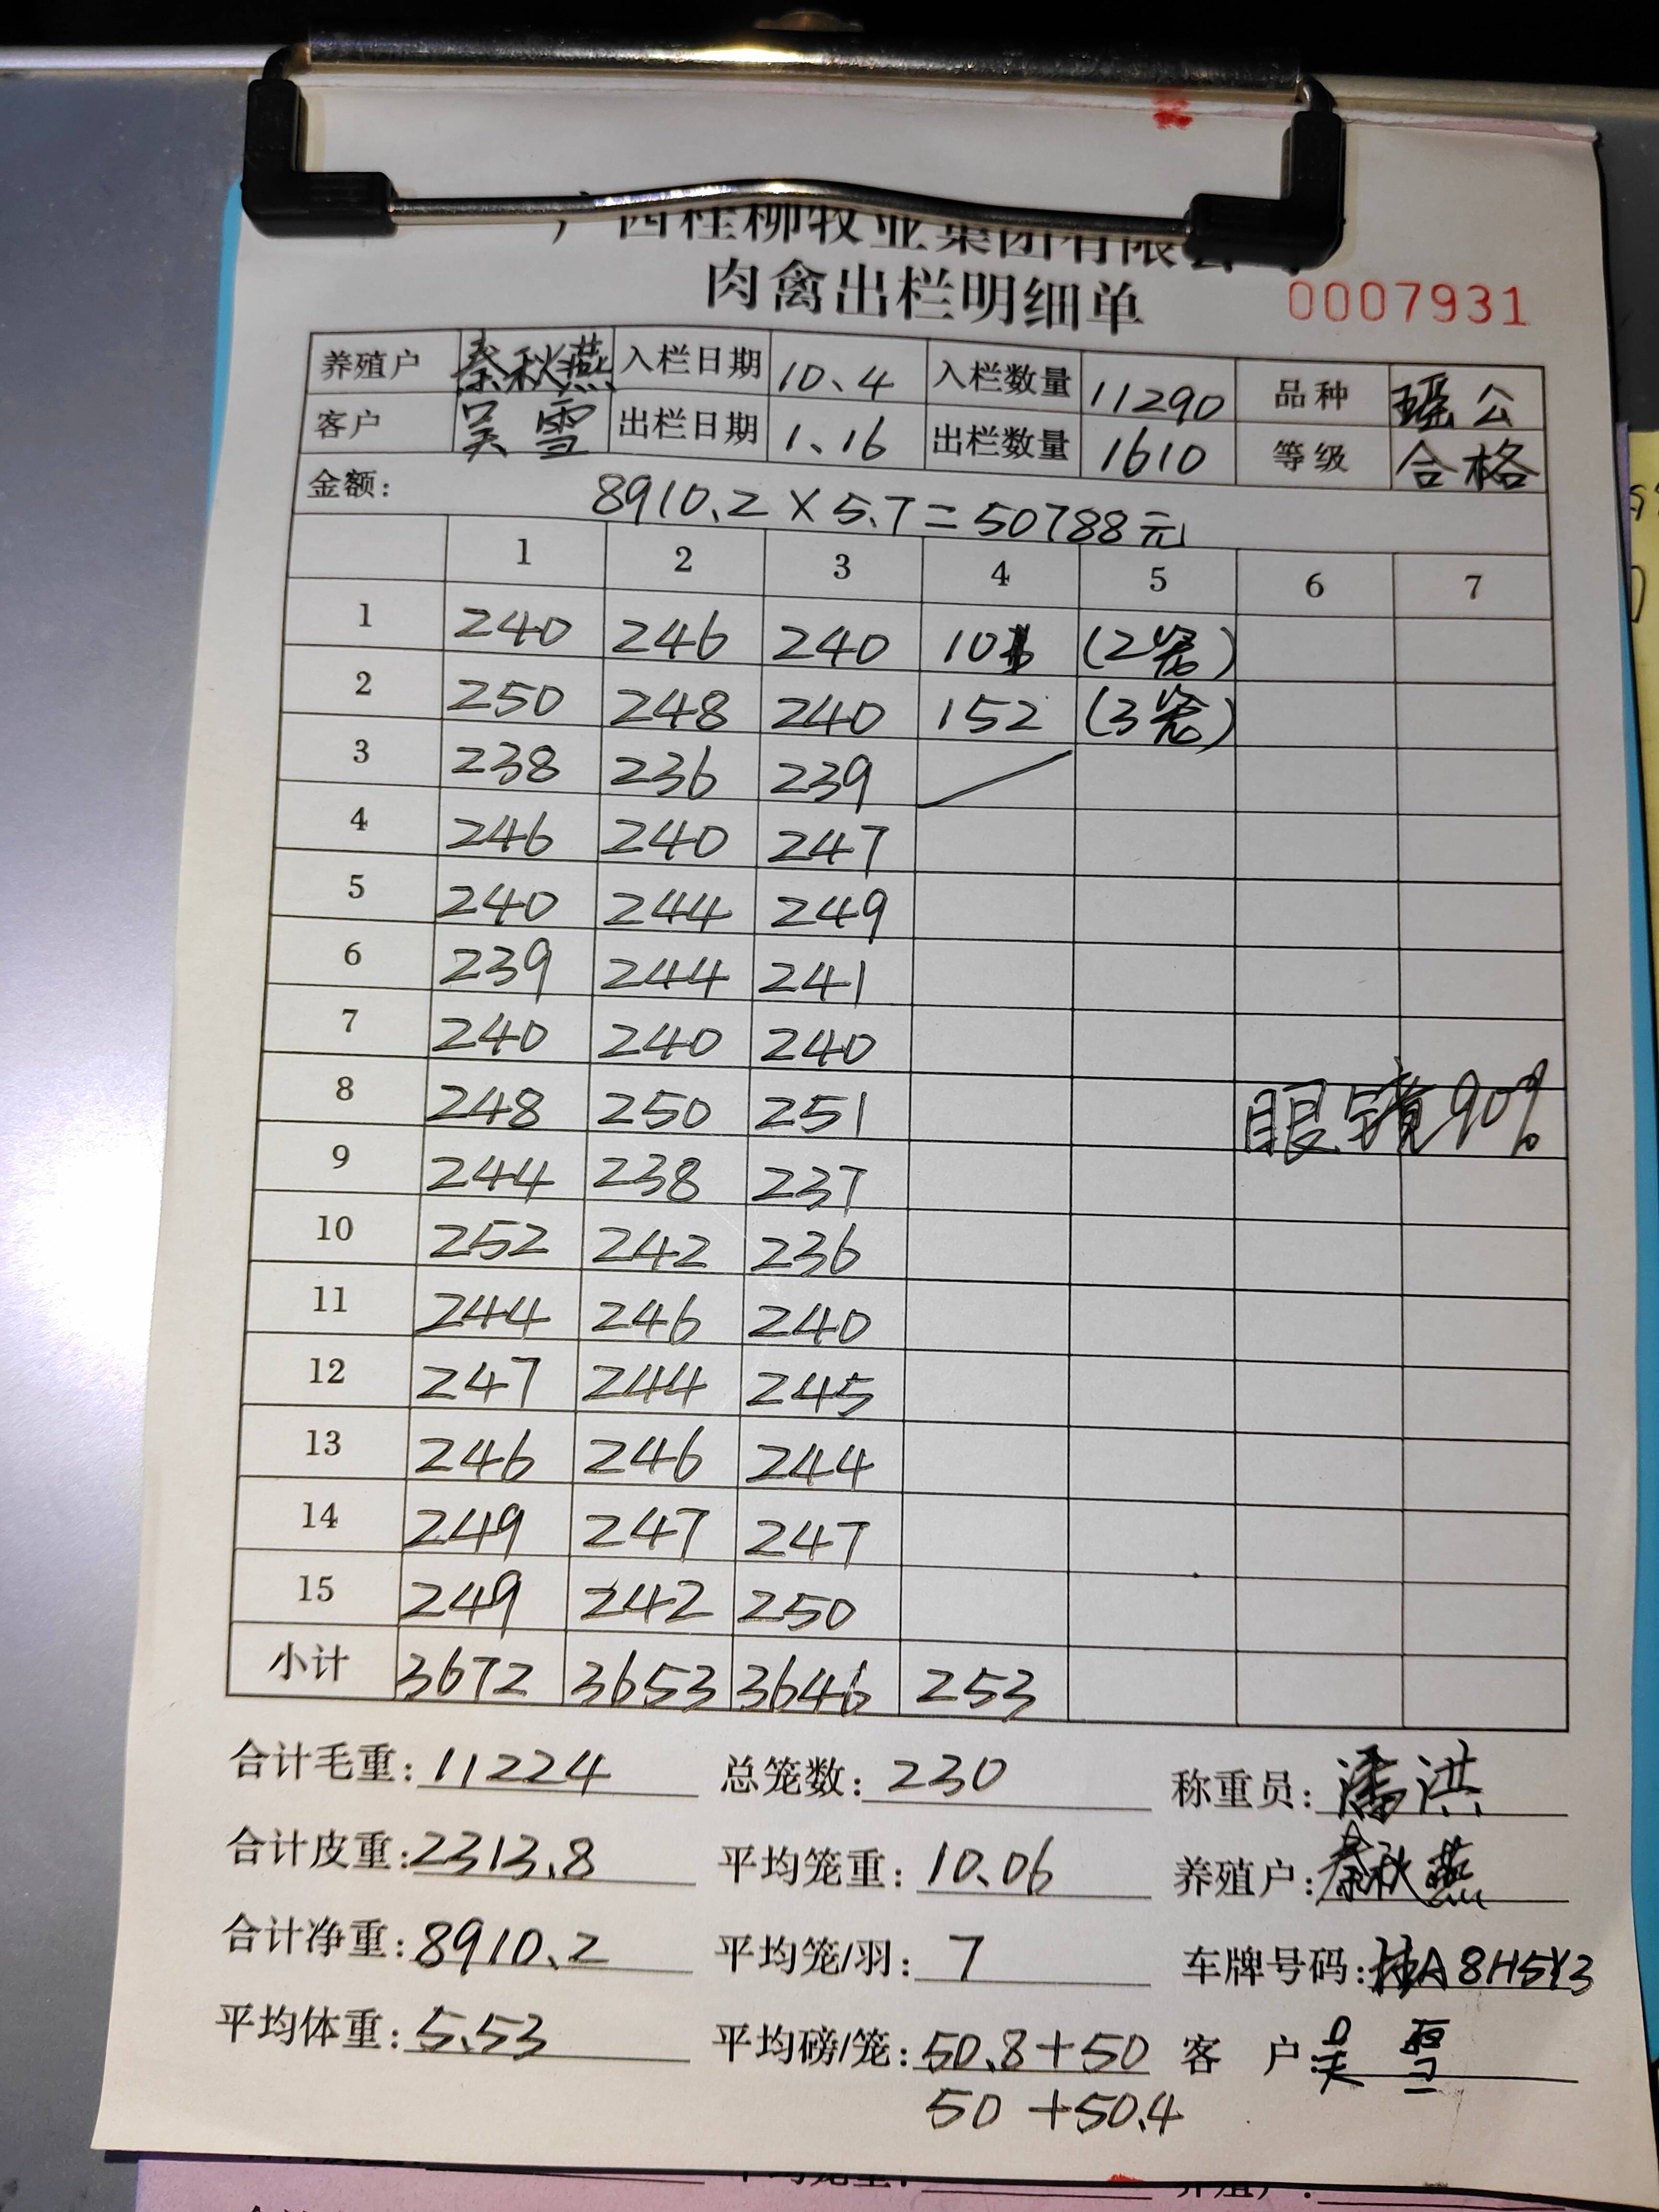 广西桂柳牧业集团有限公司
肉禽出栏明细单 0007931
养殖户 秦秋燕 入栏日期 10.4 入栏数量 11290 品种 瑶公
客户 吴雪 出栏日期 1.16 出栏数量 1610 等级 合格
金额: 8910.2×5.7=50788元
1 2 3 4 5 6 7
1 240 246 240 101 (2笼)
2 250 248 240 152 (3笼)
3 238 236 239
4 246 240 247
5 240 244 249
6 239 244 241
7 240 240 240
8 248 250 251 眼镜90%
9 244 238 237
10 252 242 236
11 244 246 240
12 247 244 245
13 246 246 244
14 249 247 247
15 249 242 250
小计 3672 3653 3646 253
合计毛重: 11224 总笼数: 230 称重员: 潘洪
合计皮重: 2313.8 平均笼重: 10.06 养殖户: 秦秋燕
合计净重: 8910.2 平均笼/羽: 7 车牌号码: A8H5Y3
平均体重: 5.53 平均磅/笼: 50.8+50 客户: 吴雪
50+50.4